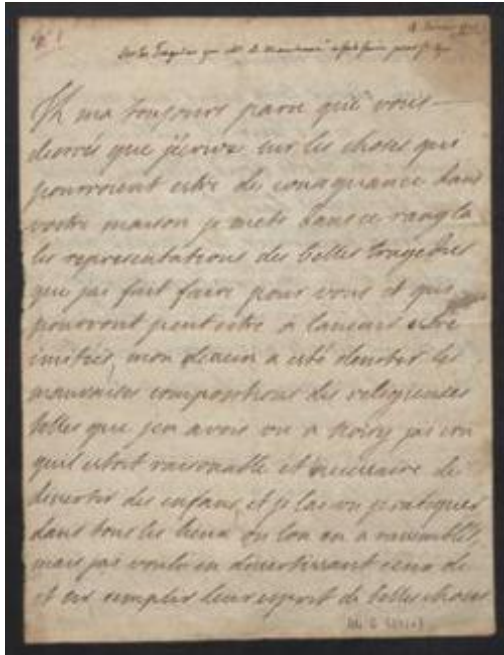 Sur les Tragedies que Me de Maintenon a fait faire pour St Cyr
Il ma tousjours paru que vous
desirés que j'ecrive sur les choses qui
pourroient estre de consequance dans
vostre maison je mets dans ce rang la
les representations des belles tragedies
que jai fait faire pour vous et qui
pourront peut estre a lavenir estre
imitées, mon dessein a esté deviter les
mauvaises compositions des religieuses
telles que jen avois vu a Noisy jai cru
quil estoit raisonable et necessaire de
divertir des enfans, et je lai vu pratiquer
dans tous les lieux ou lon en a rassemblés,
mais jai voulu en divertissant ceux de
st cir remplir leur esprit de belles choses